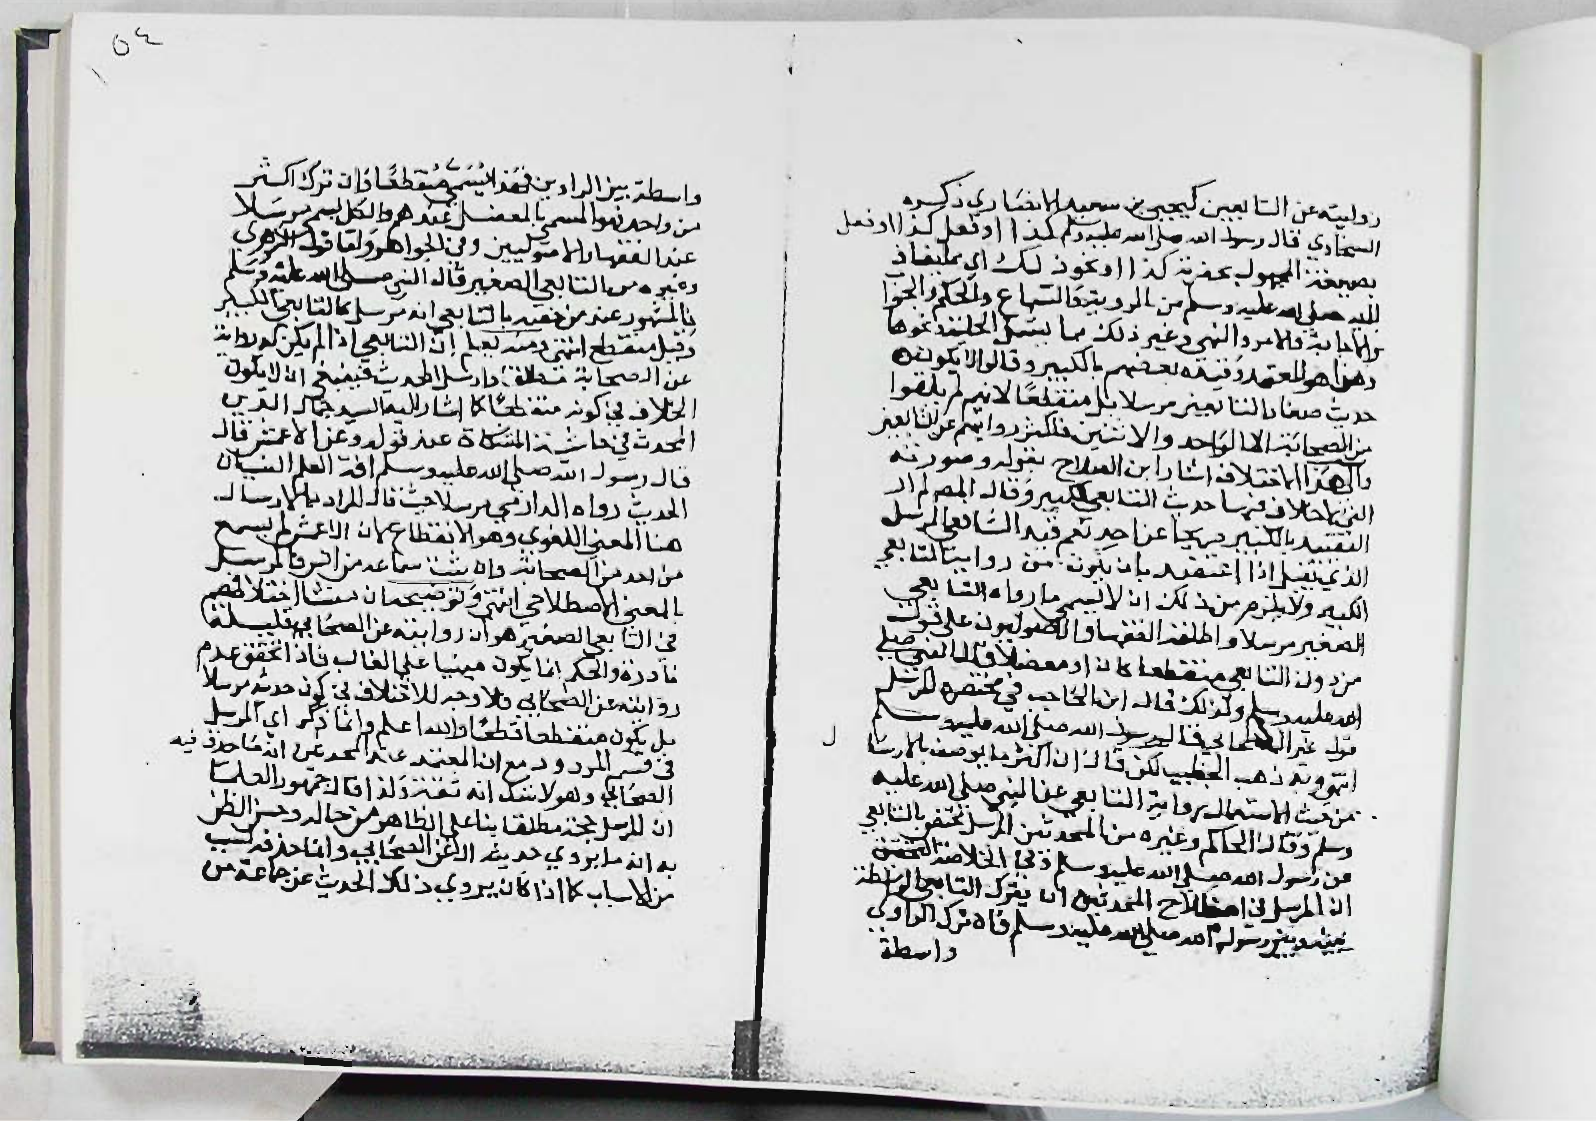 روايته عن التابعين كيحيى بن سعيد الانصاري ذكره
السخاوي قال رسول الله صلى الله عليه وسلم كذا او فعل كذا او فعل
بصيغة المجهول بحضرته كذا او نحو ذلك اي مضافا
للنبي صلى الله عليه وسلم من الروية والسماع والحكم والجواب
والاجابة والامر والنهي وغير ذلك مما ونحوها
وهذا هو المعتمد وقيده بعضهم بالكبير وقالوا لا يكون
حديث صغار التابعين مرسلا بل منقطعا لانهم لم يلقوا
من الصحابة الا الواحد والاثنين فاكثر روايتهم عن التابعين
والى هذا الاختلاف اشار ابن الصلاح بقوله وصورته
التي لا خلاف فيها حديث التابعي الكبير وقال المص لم ار
التقييد بالكبير صريحا عن احد نعم قيد الشافعي المرسل
الذي يقبل اذا اعتضد بان يكون من رواية التابعي
الكبير ولا يلزم من ذلك ان لا يسمى ما رواه التابعي
الصغير مرسلا واطلقه الفقهاء والاصوليون على قول
من دون التابعي منقطعا كان او معضلا قال النبي صلى
الله عليه وسلم ولذلك قال ابن الحاجب في مختصره المرسل
قول غير الصحابي قال رسول الله صلى الله عليه وسلم
انتهى وبه ذهب الخطيب لكن قال ان اكثر ما يوصف بالارسال
من حيث الاستعمال رواية التابعي عن النبي صلى الله عليه
وسلم وقال الحاكم وغيره من المحدثين المرسل مختص بالتابعي
عن رسول الله صلى الله عليه وسلم وفي الخلاصة التحقيق
ان المرسل في اصطلاح المحدثين ان يترك التابعي الواسطة
بينه وبين رسول الله صلى الله عليه وسلم فان ترك الراوي
واسطة
٥٤
واسطة بين الراويين فهذا يسمى منقطعا وان ترك اكثر
من واحد فهو المسمى بالمعضل عندهم والكل يسمى مرسلا
عند الفقهاء والاصوليين وفي الجواهر ولما قول الزهري
وغيره من التابعي الصغير قال النبي صلى الله عليه وسلم
فالمشهور عند من خصه بالتابعي انه مرسل كالتابعي الكبير
وقيل منقطع انتهى ومنه يعلم ان التابعي اذا لم يكن له رواية
عن الصحابة مطلقا وارسل الحديث فينبغي ان لا يكون
الخلاف في كونه منقطعا كما اشار اليه السيد جمال الدين
المحدث في حاشية المشكاة عند قوله وعن الاعمش قال
قال رسول الله صلى الله عليه وسلم افة العلم النسيان
الحديث رواه الدارمي مرسلا حيث قال المراد بالارسال
هنا المعنى اللغوي وهو الانقطاع لان الاعمش لم يسمع
من احد من الصحابة وان ثبت سماعه من انس فالمرسل
بالمعنى الاصطلاحي انتهى وتوضيحه ان منشأ اختلافهم
في التابعي الصغير هو ان روايته عن الصحابي قليلة
نادرة والحكم انما يكون مبنيا على الغالب فاذا تحقق عدم
روايته عن الصحابي فلا وجه للاختلاف في كون حديثه مرسلا
بل يكون منقطعا قطعا والله اعلم وانما ذكر اي المرسل
في قسم المردود مع ان المعتمد عند المحدثين انه ما حذف فيه
الصحابي وهو لا شك انه ثقة ولذا قال جمهور العلماء
ان المرسل حجة مطلقا بناء على الظاهر من حاله وحسن الظن
به انه ما يروي حديثه الا عن الصحابي وانما حذفه لسبب
من الاسباب كما اذا كان يروي ذلك الحديث عن جماعة من